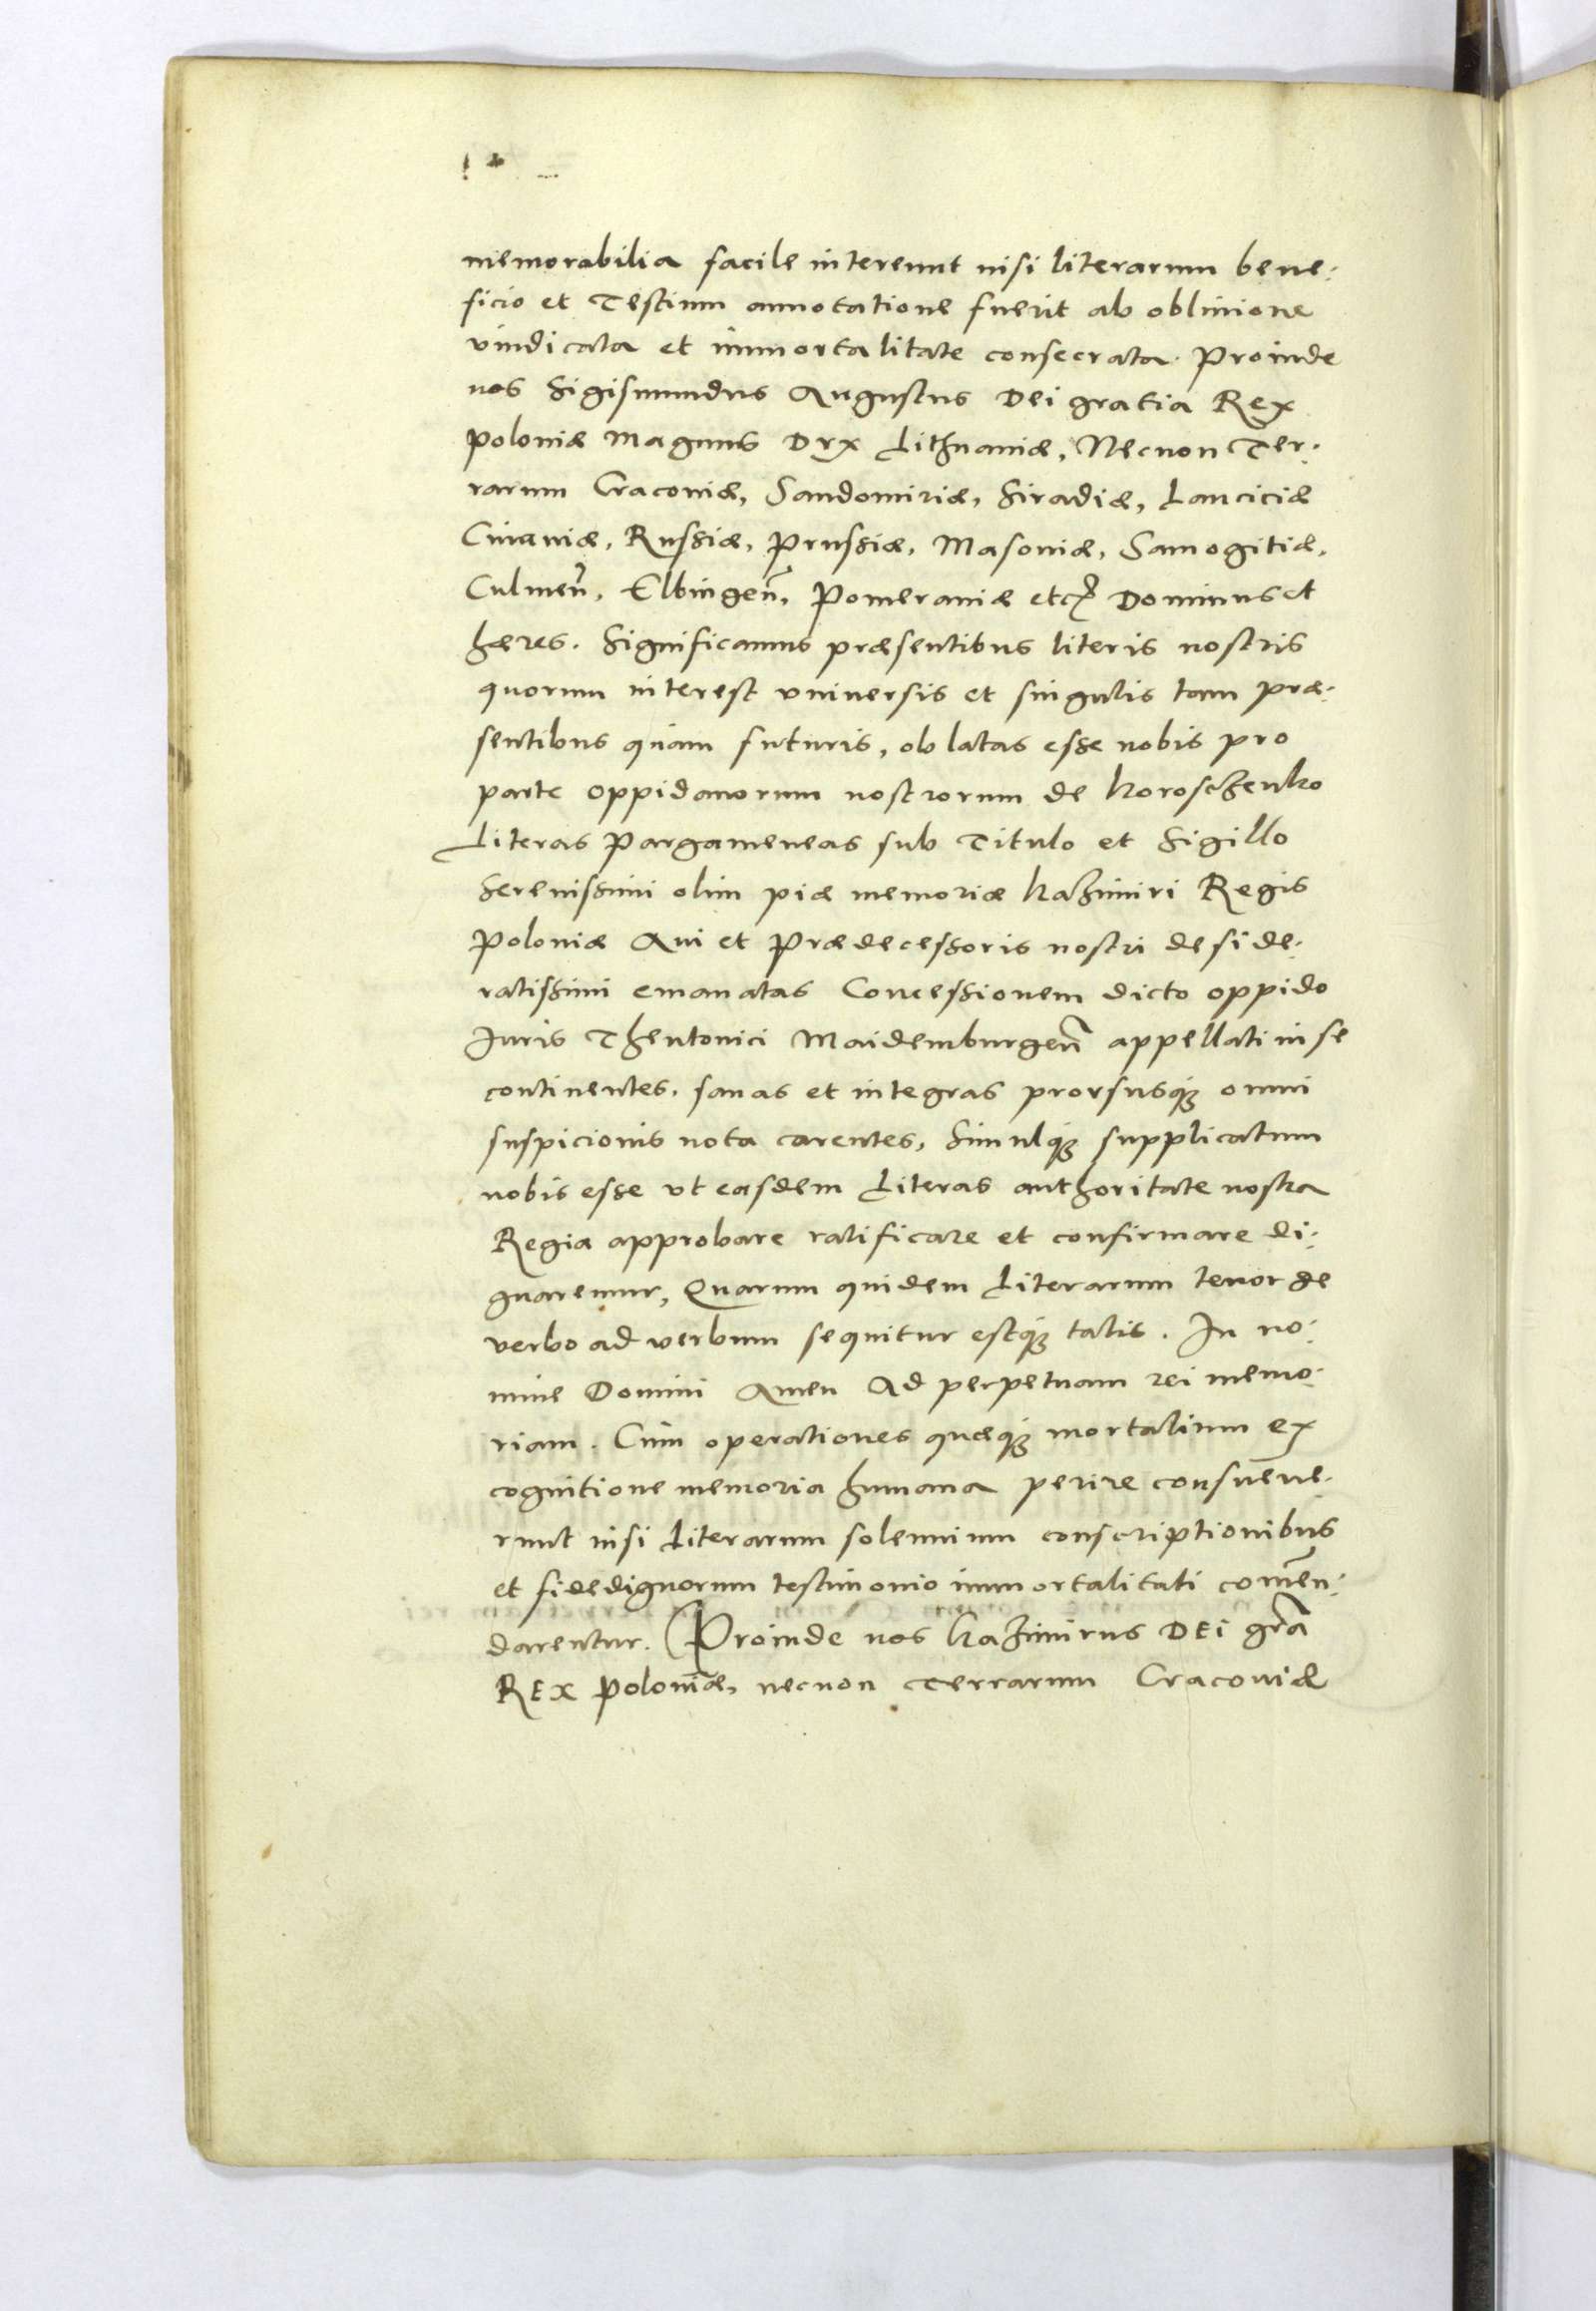 memorabilia facile intereunt nisi literarum bene:
ficio et Testium annotatione fuerit ab obliuione
vindicata et immortalitate consecrata. Proinde
nos Sigismundus Augustus Dei gratia Rex
Poloniæ Magnus Dux Lithuaniæ, Necnon Ter:
rarum Cracouiæ, Sandomiriæ, Siradiæ, Lanciciæ
Cuiauiæ, Russiæ, Prussiæ, Masouiæ, Samogitiæ,
Culmeñ, Elbingeñ, Pomeraniæ etcꝫ Dominus et
hæres. Significamus præsentibus literis nostris
quorum interest vniuersis et singulis tam præ:
sentibus quàm futuris, oblatas esse nobis pro
parte oppidanorum nostrorum de Koroschenko
Literas Pargameneas sub Titulo et Sigillo
Serenissimi olim piæ memoriæ Kazimiri Regis
Poloniæ Aui et Prædecessoris nostri deside:
ratissimi emanatas Concessionem dicto oppido
Iuris Theutonici Maidemburgeñ appellati in se
continentes. sanas et integras prorsusqꝫ omni
suspicionis nota carentes, Simulqꝫ supplicatum
nobis esse vt easdem Literas authoritate nostra
Regia approbare ratificare et confirmare di:
gnaremur, Quarum quidem Literarum tenor de
verbo ad verbum sequitur estqꝫ talis. In no:
mine Domini Amen Ad perpetuam rei memo:
riam. Cùm operationes quæqꝫ mortalium ex
cognitione memoria humana perire consueue:
runt nisi Literarum solennium conscriptionibus
et fidedignorum testimonio immortalitati com̃en:
darentur. Proinde nos Kazimirus DEI gr̃a
REX Poloniæ, necnon Terrarum Cracouiæ